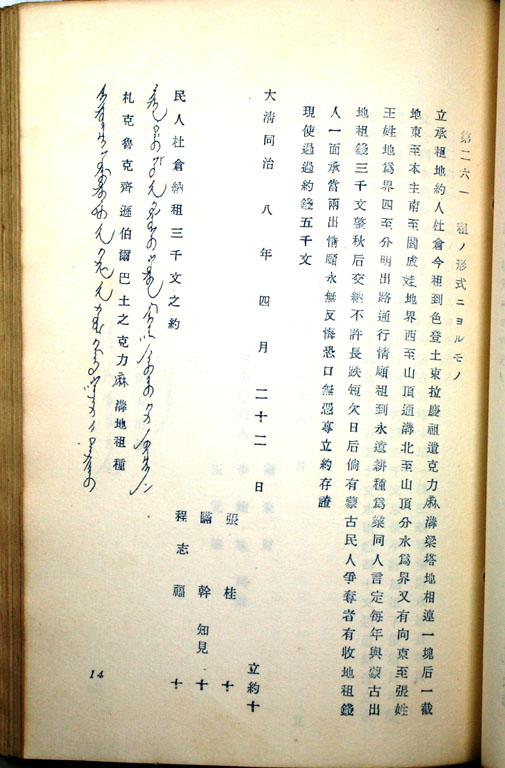 第二六一 租ノ形式ニヨルモノ
立承租地約人杜倉今租到色登土東拉慶祖遺克力麻溝梁塔地相連一塊后一截
地東至本主南至關成娃地界西至山頂通溝北至山頂分水爲界又有向東至張姓
王姓地爲界四至分明出路通行情願租到永遠耕種爲業同人言定每年與蒙古出
地租錢三千文整秋后交納不許長跌短欠日后倘有蒙古民人爭奪者有收地租錢
人一面承當兩出情願永無反悔恐口無憑專立約存證
現使過過約錢五千文
大淸同治八年四月二十二日
立約十
張桂十
瞞幹知見十
程志福十
民人杜倉納租三千文之約
札克魯克齊遜伯爾巴土之克力麻溝地租種
14